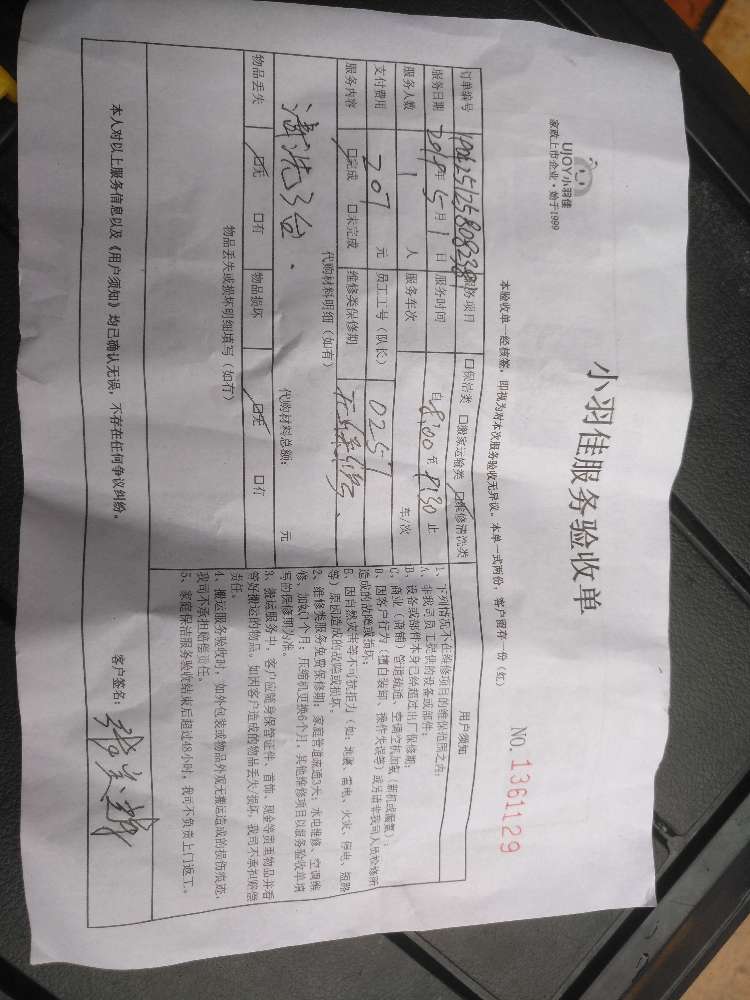 UJOY小羽佳
家政上市企业·始于1999
小羽佳服务验收单
NO.1361129
本验收单一经核签，即视为对本次服务验收无异议。本单一式两份，客户留存一份（红）
订单编号
服务项目 口保洁类 口搬家运输类 口维修清洗类
服务日期 2019年5月1日 服务时间 自8:00至9:30止
服务人数 1 人 服务车次 车/次
支付费用 207 元 员工工号（队长） 0257
服务内容 口完成 口未完成 维修类保修期
代购材料明细（如有） 代购材料总额： 元
清洗3台.
物品丢失 口无 口有 物品损坏 口无 口有
物品丢失或损坏明细填写（如有）
用户须知
1、下列情况不在维修项目的维保范围之内：
A、非我司员工提供的设备或部件；
B、设备或部件本身已经超过出厂保修期；
C、商业（商铺）管道疏通、空调空机加氨（新机或漏氨）；
D、因客户行为（擅自装卸、操作失误等）或另请非我司人员检修所
造成的故障或损坏；
E、因自然灾害等不可抗拒力（如：地震、雷电、火灾、停电、短路
等）原因造成的故障或损坏。
2、维修类服务免费保修期：家庭管道疏通3天；水电维修、空调维
修、加氨1个月；压缩机更换6个月，其他维修项目以服务验收单填
写的保修期为准。
3、搬运服务中，客户应随身保管证件、首饰、现金等贵重物品并看
管好搬运的物品。如因客户造成的物品丢失/损坏，我司不承担赔偿
责任。
4、搬运服务验收时，如外包装或物品外观无搬运造成的损伤痕迹，
我司不承担赔偿责任。
5、家庭保洁服务验收结束后超过48小时，我司不负责上门返工。
本人对以上服务信息以及《用户须知》均已确认无误，不存在任何争议纠纷。
客户签名：